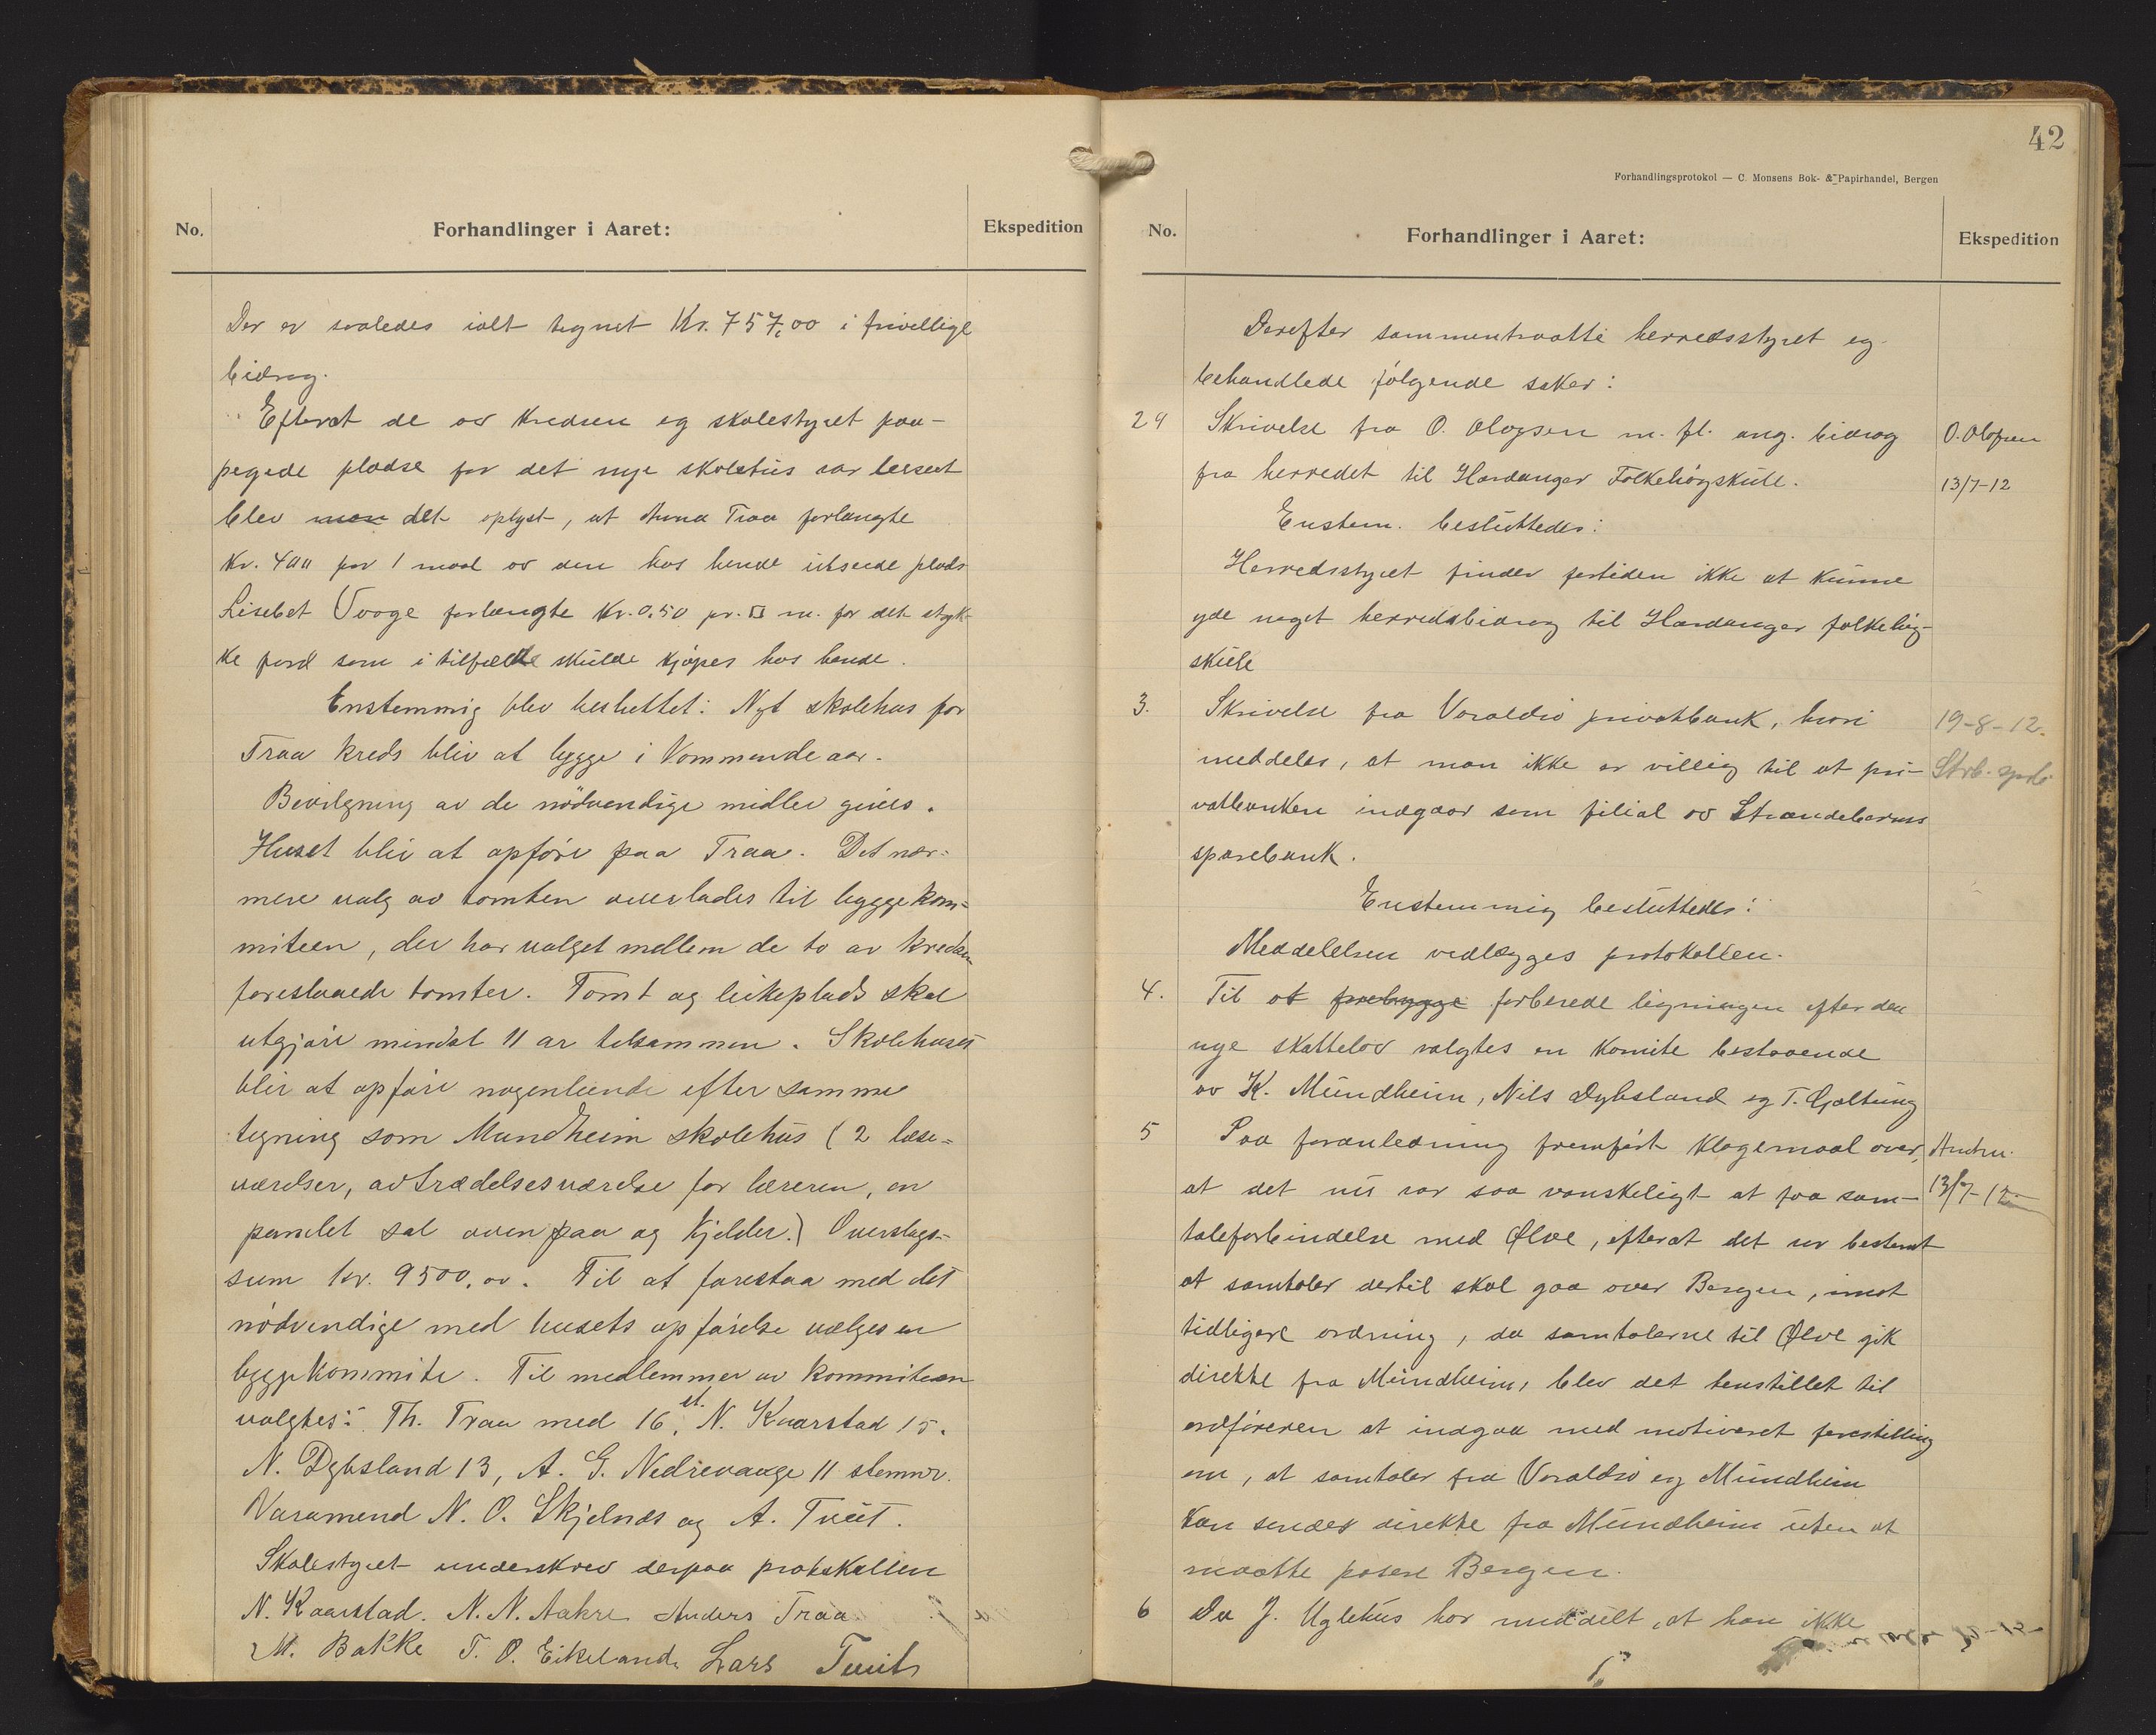 No.
Forhandlinger i Aaret:
Ekspedition
Der er saaledes ialt tegnet Kr. 757,00 i frivillige
bidrag.
Efterat de av kredsen og skolestyret paa-
pegede pladse for det nye skolehus var beseet
blev det oplyst, at Anna Traa forlangte
Kr. 400 for 1 maal av den hos hende utseede plads
Lisebet Vaage forlangte Kr. 0,50 pr. □ m. for det styk-
ke jord som i tilfælde skulde kjøpes hos hende.
Enstemmig blev besluttet: Nyt skolehus for
Traa kreds bliv at bygge i kommende aar.
Bevilgning av de nödvendige midler gives.
Huset bliv at opföre paa Traa. Det nær=
mere valg av tomten overlades til byggekom=
miteen, der har valget mellem de to av kredsen
foreslaaede tomter. Tomt og leikeplads skal
utgjöre mindst 11 ar tilsammen. Skolehuset
blir at opföre nogenlunde efter samme
tegning som Mundheim skolehus (2 læse=
værelser, avtrædelsesværelse for læreren, en
panelet sal ovenpaa og kjelder.) Overslags-
sum kr. 9500,00. Til at forestaa med det
nödvendige med husets opförelse vælges en
byggekommite. Til medlemmer av kommiteen
valgtes: Th. Traa med 16 st. N. Kaarstad 15.
N. Dybsland 13, A. G. Nedrevaage 11 stemmer.
Varamend N. O. Skjelnæs og A. Tveit.
Skolestyret underskrev derpaa protokollen
N. Kaarstad. N. N. Aakre Anders Traa
M. Bakke T. O. Eikeland Lars Tveit
42
Forhandlingsprotokol — C. Monsens Bok- & Papirhandel, Bergen
No.
Forhandlinger i Aaret:
Ekspedition
Derefter sammentraatte herredsstyret og
behandlede følgende saker:
29 Skrivelse fra O. Olafsen m. fl. ang. bidrag O. Olafsen
fra herredet til Hardanger Folkehögskule. 13/7-12
Enstem. besluttedes:
Herredsstyret finder fortiden ikke at kunne
yde noget herredsbidrag til Hardanger folkehög-
skule
3. Skrivelse fra Varaldsö privatbank, hvori 19-8-12.
meddeles, at man ikke er villig til at pri- Strb. spb.
vatbanken indgaar som filial av Strandebarms
sparebank.
Enstemmig besluttedes:
Meddelelsen vedlægges protokollen.
4. Til at forebygge forberede ligningen efter den
nye skattelov valgtes en komite bestaaende
av K. Mundheim, Nils Dybsland og T. Gjeltung
5 Paa foranledning fremført klagemaal over,
at det nu var saa vanskeligt at faa sam- 13/7-12
taleforbindelse med Ølve, efterat det er bestemt
at samtaler dertil skal gaa over Bergen, imot
tidligere ordning, da samtalerne til Ølve gik
direkte fra Mundheim, blev det henstillet til
ordføreren at indgaa med motiveret forestilling
om, at samtaler fra Varaldsö og Mundheim
kan sendes direkte fra Mundheim uten at
maatte passere Bergen.
6 Da J. Uglehus har meddelt, at han ikke